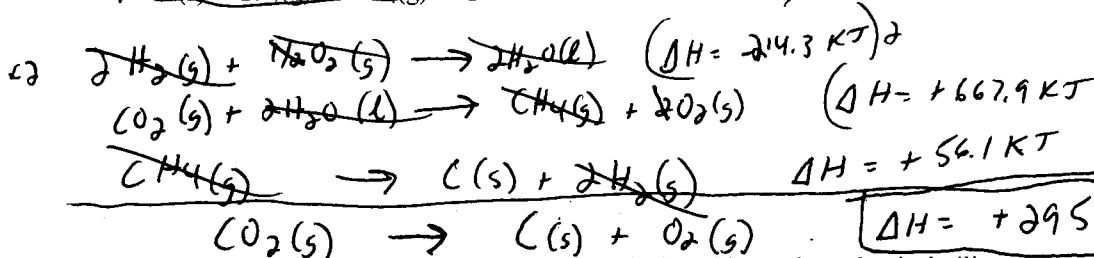 x2 2H₂(g) + ½O₂(g) → 2H₂O(l) (ΔH = -214.3 KJ)2
CO₂(g) + 2H₂O(l) → CH₄(g) + 2O₂(g) (ΔH = +667.9 KJ
CH₄(g) → C(s) + 2H₂(g) ΔH = +56.1 KJ
CO₂(g) → C(s) + O₂(g) . ΔH = +295